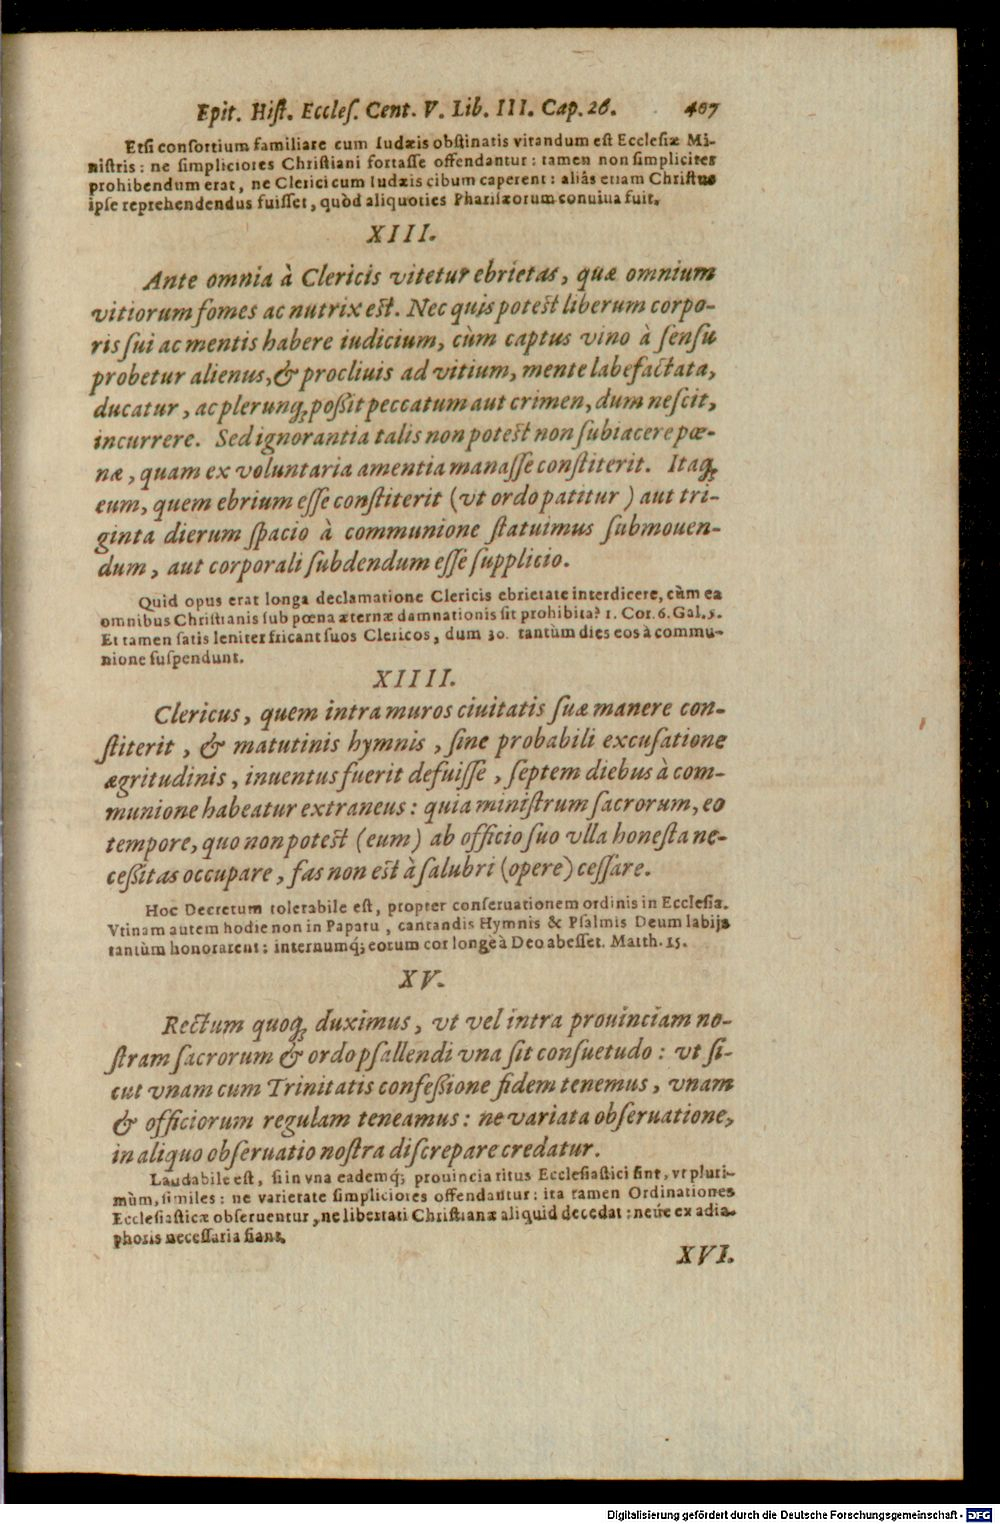 Epit. Hiſt. Eccleſ. Cent. V. Lib. III. Cap. 26. 407
Etſi conſortium familiare cum Iudæis obſtinatis vitandum eſt Eccleſiæ Mi-
niſtris: ne ſimpliciores Chriſtiani fortaſſe offendantur: tamen non ſimpliciter
prohibendum erat, ne Clerici cum Iudæis cibum caperent: aliâs etiam Chriſtus
ipſe reprehendendus fuiſſet, quòd aliquoties Phariſæorum conuiua fuit.
XIII.
Ante omnia à Clericis vitetur ebrietas, quæ omnium
vitiorum fomes ac nutrix eſt. Nec quis poteſt liberum corpo-
ris ſui ac mentis habere iudicium, cùm captus vino à ſenſu
probetur alienus, & procliuis ad vitium, mente labefactata,
ducatur, ac plerunq; poßit peccatum aut crimen, dum neſcit,
incurrere. Sed ignorantia talis non poteſt non ſubiacere pœ-
næ, quam ex voluntaria amentia manaſſe conſtiterit. Itaq;
eum, quem ebrium eſſe conſtiterit (vt ordo patitur) aut tri-
ginta dierum ſpacio à communione ſtatuimus ſubmouen-
dum, aut corporali ſubdendum eſſe ſupplicio.
Quid opus erat longa declamatione Clericis ebrietate interdicere, cùm ea
omnibus Chriſtianis ſub pœna æternæ damnationis ſit prohibita? 1. Cor. 6. Gal. 5.
Et tamen ſatis leniter fricant ſuos Clericos, dum 30. tantùm dies eos à commu-
nione ſuſpendunt.
XIIII.
Clericus, quem intra muros ciuitatis ſuæ manere con-
ſtiterit, & matutinis hymnis, ſine probabili excuſatione
ægritudinis, inuentus fuerit defuiſſe, ſeptem diebus à com-
munione habeatur extraneus: quia miniſtrum ſacrorum, eo
tempore, quo non poteſt (eum) ab officio ſuo vlla honeſta ne-
ceßitas occupare, fas non eſt à ſalubri (opere) ceſſare.
Hoc Decretum tolerabile eſt, propter conſeruationem ordinis in Eccleſia.
Vtinam autem hodie non in Papatu, cantandis Hymnis & Pſalmis Deum labijs
tantùm honorarent: internumq; eorum cor longè à Deo abeſſet. Matth. 15.
XV.
Rectum quoq; duximus, vt vel intra prouinciam no-
ſtram ſacrorum & ordo pſallendi vna ſit conſuetudo: vt ſi-
cut vnam cum Trinitatis confeßione fidem tenemus, vnam
& officiorum regulam teneamus: ne variata obſeruatione,
in aliquo obſeruatio noſtra diſcrepare credatur.
Laudabile eſt, ſi in vna eademq; prouincia ritus Eccleſiaſtici ſint, vt pluri-
mùm, ſimiles: ne varietate ſimpliciores offendantur: ita tamen Ordinationes
Eccleſiaſticæ obſeruentur, ne libertati Chriſtianæ aliquid decedat: neue ex adia-
phoris neceſſaria fiant.
XVI.
Digitalisierung gefördert durch die Deutsche Forschungsgemeinschaft - DFG